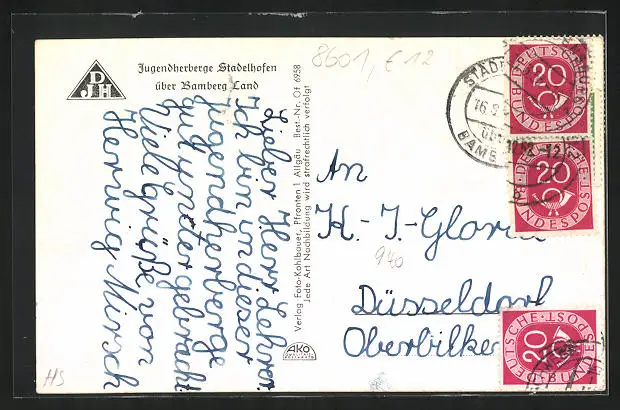 DJH
Jugendherberge Stadelhofen
über Bamberg Land
8601, € 12
Lieber Herr Lehrer.
Ich bin in dieser
Jugendherberge
gut untergebracht
Viele Grüße von
Herwig Mirsch
Verlag Foto-Kohlbauer, Pfronten 1 Allgäu Best.-Nr. Of 6958
Jede Art Nachbildung wird strafrechtlich verfolgt
AKO
An
K.-J.-Gloria
940
Düsseldorf
Oberbilke
HS
STAD
16.8.
über
BAMB
20
DEUTSCHE BUNDESPOST
20
DEUTSCHE BUNDESPOST
20